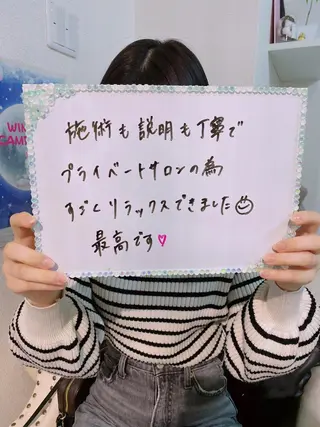 施術も説明も丁寧で
プライベートサロンの為
すごくリラックスできました
最高です♡
WIN
GAME